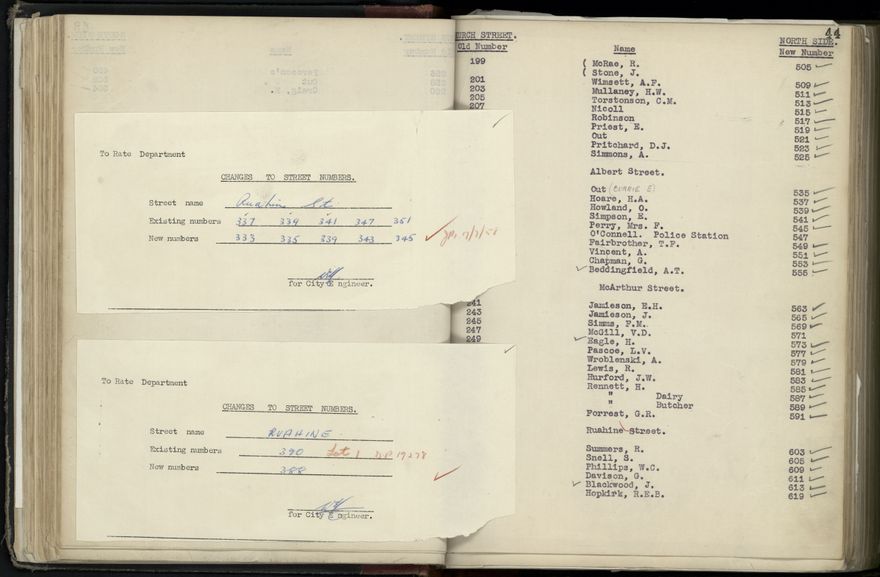 To Rate Department
CHANGES TO STREET NUMBERS.
Street name Ruahine St
Existing numbers 337 339 341 347 351
New numbers 333 335 339 343 345
for City Engineer.
To Rate Department
CHANGES TO STREET NUMBERS.
Street name RUAHINE
Existing numbers 390 Lot 1 D.P. 19278
New numbers 388
for City Engineer.
44
URCH STREET. NORTH SIDE.
Old Number Name New Number
199 ( McRae, R. 505
( Stone, J.
201 Wimsett, A.F. 509
203 Mullaney, H.W. 511
205 Torstonson, C.M. 513
207 Nicoll 515
Robinson 517
Priest, E. 519
Out 521
Pritchard, D.J. 523
Simmons, A. 525
Albert Street.
Out (CURRIE E) 535
Hoare, H.A. 537
Howland, O. 539
Simpson, E. 541
Perry, Mrs. F. 545
O'Connell. Police Station 547
Fairbrother, T.F. 549
Vincent, A. 551
Chapman, G. 553
Beddingfield, A.T. 555
McArthur Street.
241 Jamieson, E.H. 563
243 Jamieson, J. 565
245 Simms, F.M. 569
247 McGill, V.D. 571
249 Eagle, H. 573
Pascoe, L.V. 577
Wroblenski, A. 579
Lewis, R. 581
Hurford, J.W. 583
Rennett, H. 585
" Dairy 587
" Butcher 589
Forrest, G.R. 591
Ruahine Street.
Summers, R. 603
Snell, S. 605
Phillips, W.C. 609
Davison, G. 611
Blackwood, J. 613
Hopkirk, R.E.B. 619